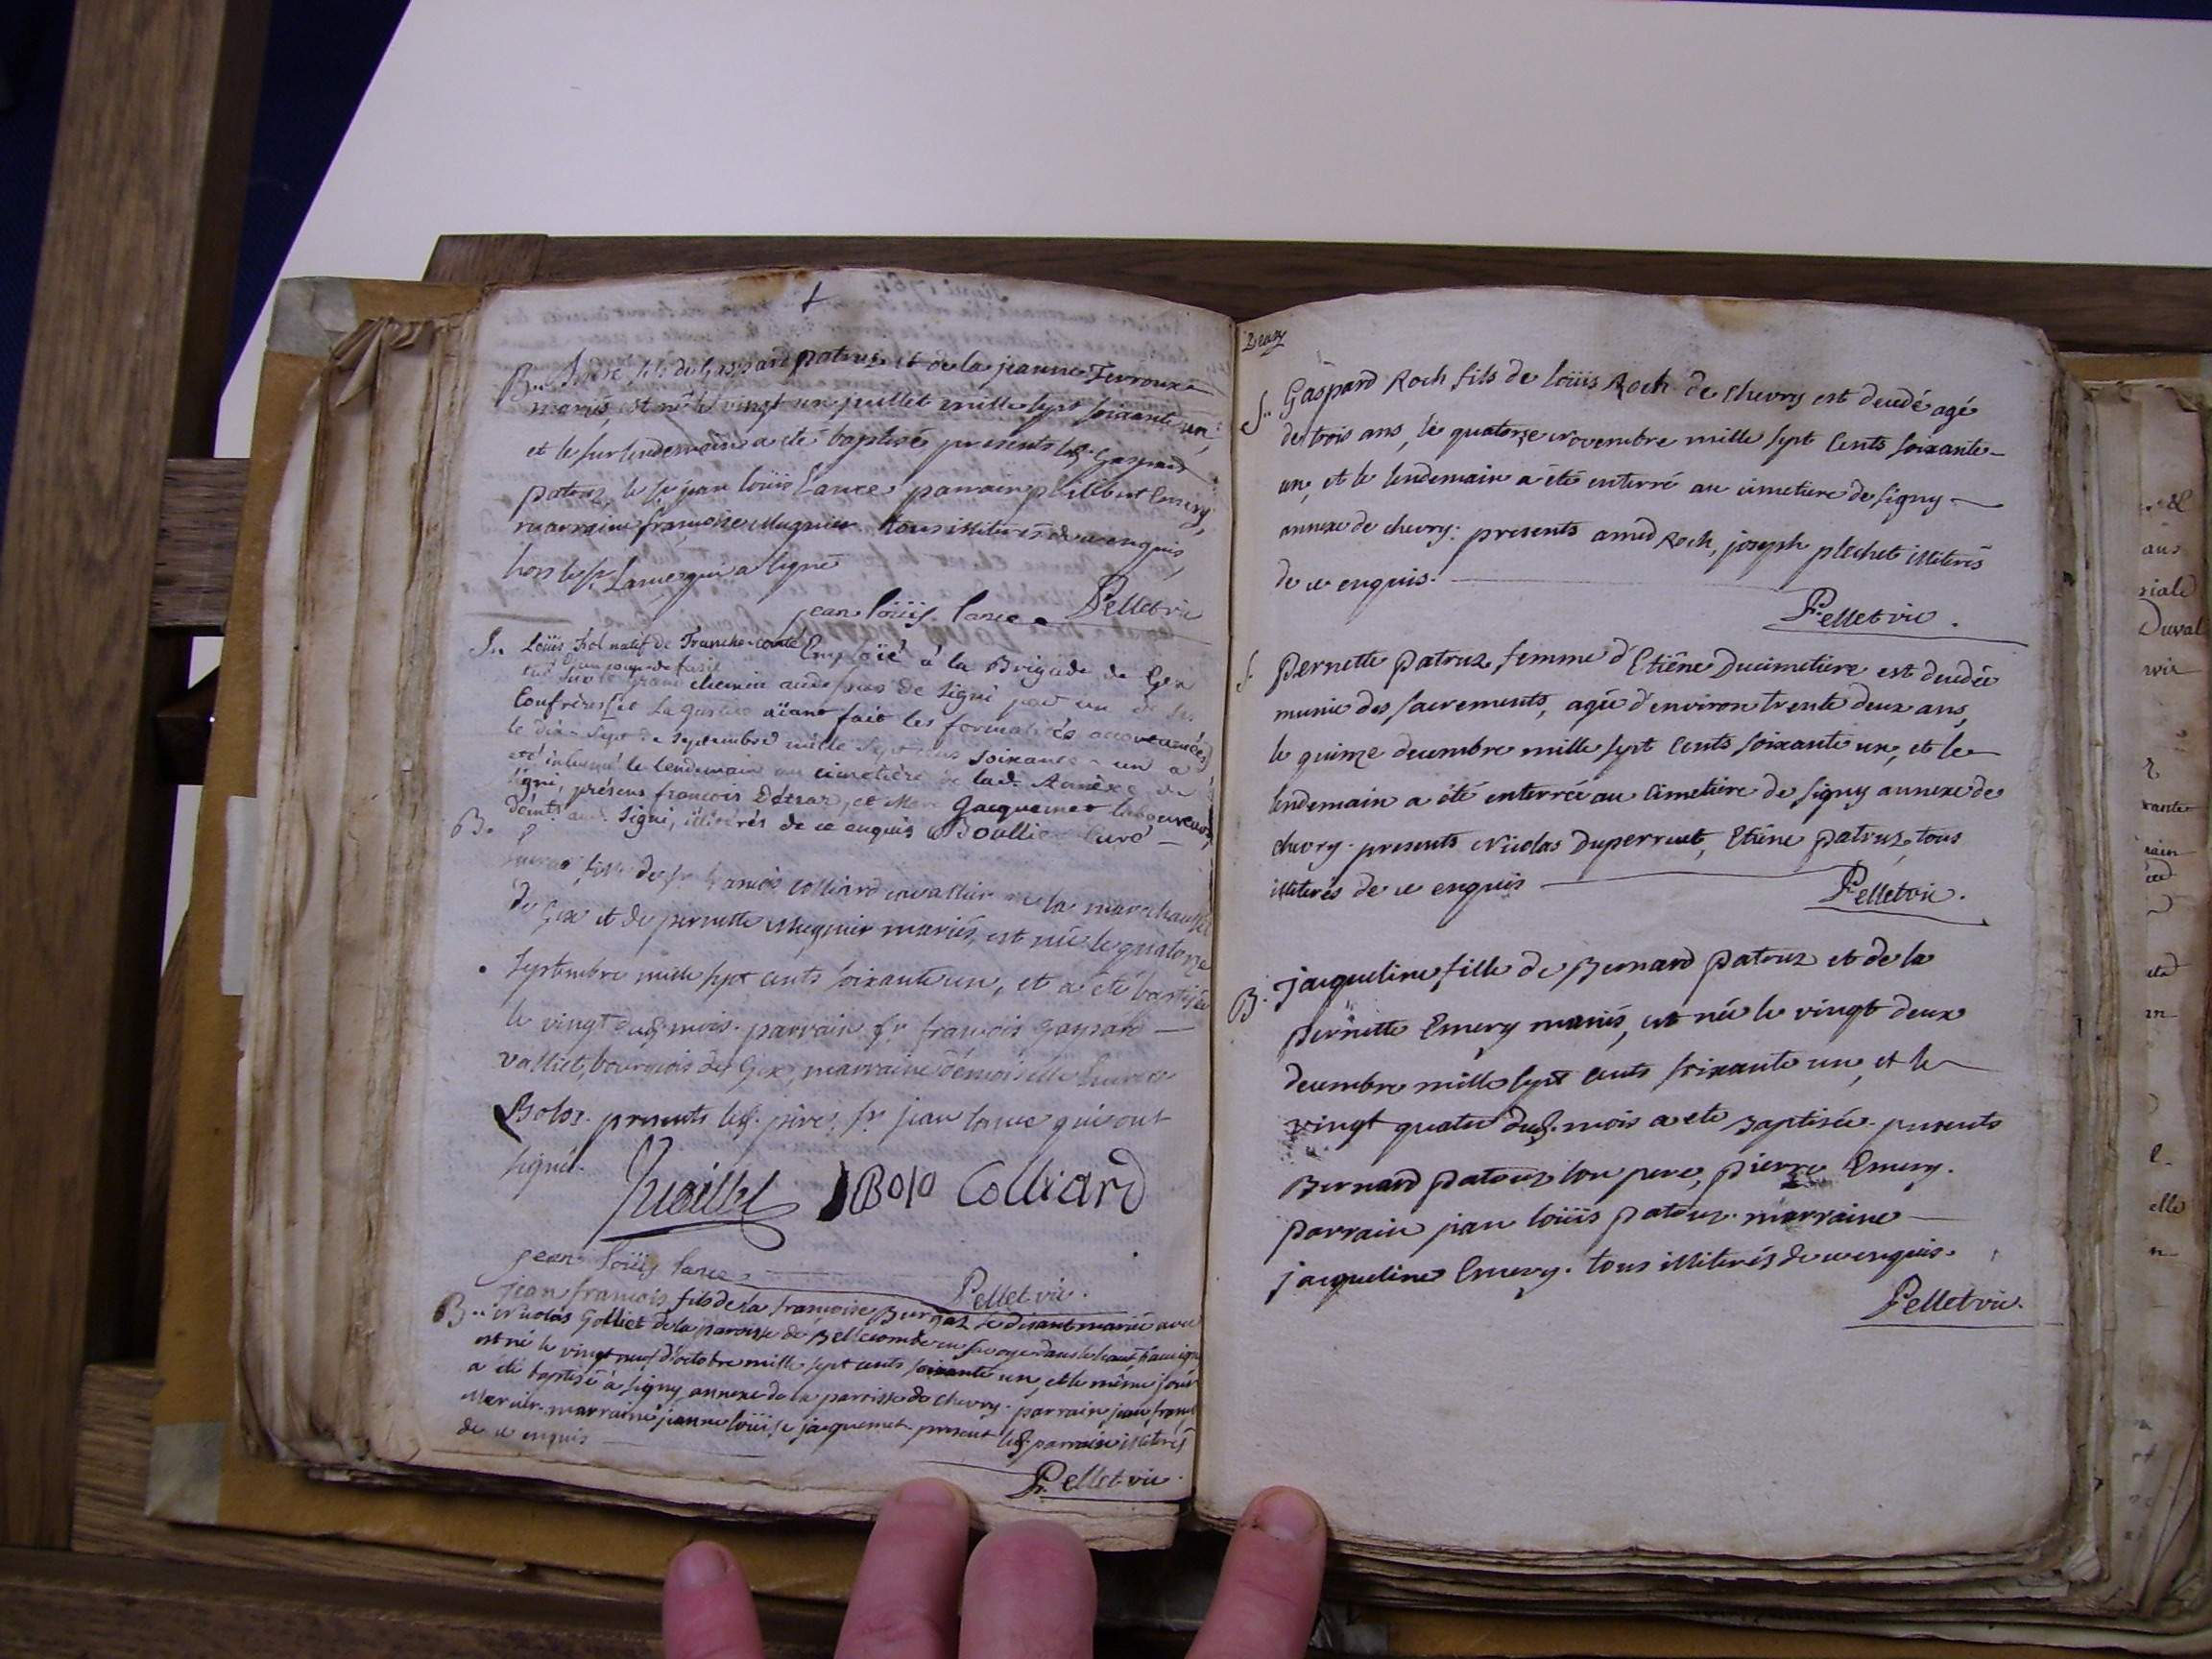 B.. André fils de Gaspard patruz et de la jeanne Fevroux
mariés, est né le vingt un juillet mille sept soixante un,
et le surlendemain a été baptisé présents led. Gaspard
patruz, le sr jean loüis Lance parrain philibert Emery,
marraine françoise Mugnier tous illiterés de ce enquis,
hors led. sr Lance qui a signé
jean loüis lance Pellet vic
S.. Loüis natif de Franche-comté Emploïé à la Brigade de Gex
tué d'un coup de fusil
sur le grand chemin au dessus de Signi par un de ses
Confrères, et la justice aïant fait les formalités accoutumées,
le dix-sept de septembre mille sept cens soixante-un a
eté inhumé le lendemain au cimetière de lad. Annèxe de
Signi, présens françois Détraz, et Jacquemet laboureurs,
aud. Signi, illitérés de ce enquis Boullier curé
B. fille de sr françois Colliard cavallier de la marechaussée
de Gex et de pernette Mugnier mariés, est née le quatorze
septembre mille sept cents soixante un, et a été baptisée
le vingt dud. mois. parrain sr françois Gaspard
Valliet, bourgeois de Gex, marraine demoiselle
Bolo. presents led. père, sr jean lance qui ont
signé.
Bolo Colliard
jean loüis lance
Pellet vic.
B.. jean francois fils de la françoise Burgaz se disant mariée avec
Nicolas Golliet de la paroisse de Bellecombe en Savoye dans le haut faucigni
est né le vingt neuf d'octobre mille sept cents soixante un, et le même jour
a été baptisé à Signy annexe de la paroisse de Chevry. parrain jean franç
Mercier. marraine jeanne loüise jacquemet. present led. parrain illiteré
de ce enquis
Pellet vic.
S.. Gaspard Roch fils de loüis Roch de Chevry est decedé agé
de trois ans, le quatorze novembre mille sept cents soixante
un, et le lendemain a été enterré au cimetiere de Signy
annexe de chevry: presents amed Roch, joseph plechet illiterés
de ce enquis.
Pellet vic.
S. Pernette patruz femme d'Etiêne Ducimetière est decedée
munie des sacrements, agée d'environ trente deux ans,
le quinze decembre mille sept cents soixante un, et le
lendemain a été enterrée au cimetiere de Signy annexe de
chevry. presents Nicolas Duperruet, Etiêne patruz, tous
illiterés de ce enquis
Pellet vic.
B. jacqueline fille de Bernard patruz et de la
pernette Emery mariés, est née le vingt deux
decembre mille sept cents soixante un, et le
vingt quatre dud. mois a eté baptisée. presents
Bernard patruz son pere, pierre Emery.
parrain jean loüis patruz. marraine
jacqueline Emery. tous illiterés de ce enquis.
Pellet vic.